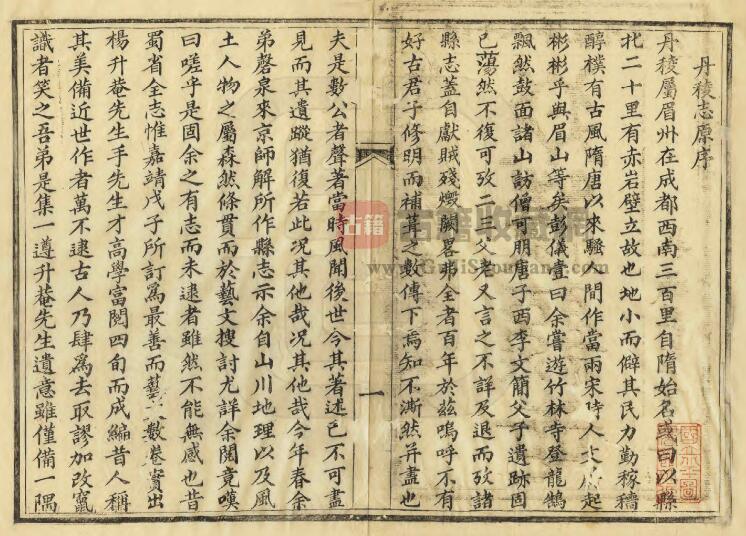 丹稜志原序
丹稜屬眉州在成都西南三百里自隋始名或曰以縣
北二十里有赤岩壁立故也地小而僻其民力勤稼穡
醇樸有古風隋唐以來騷人間作當兩宋時人文蔚起
彬彬乎與眉山等矣彭儀壹曰余嘗遊竹林寺登龍鵠
飄然鼓面諸山訪僧可朋唐子西李文簡父子遺跡固
已蕩然不復可攷二三父老又言之不詳及退而攷諸
縣志蓋自獻賊殘燬闕畧弗全者百年於茲嗚呼不有
好古君子修明而補葺之數傳下焉知不澌然并盡也
一
夫是數公者聲著當時風聞後世今其著述已不可盡
見而其遺蹤猶復若此況其他哉況其他哉今年春余
弟磬泉來京師解所作縣志示余自山川地理以及風
土人物之屬森然條貫而於藝文搜討尤詳余閱竟嘆
曰嗟乎是固余之有志而未逮者雖然不能無感也昔
蜀省全志惟嘉靖戊子所訂爲最善而藝文數卷實出
楊升菴先生手先生才高學富閱四旬而成編昔人稱
其美備近世作者萬不逮古人乃肆爲去取謬加改竄
識者笑之吾弟是集一遵升菴先生遺意雖僅備一隅
古籍
古籍收藏
www.GujiShoucang.com